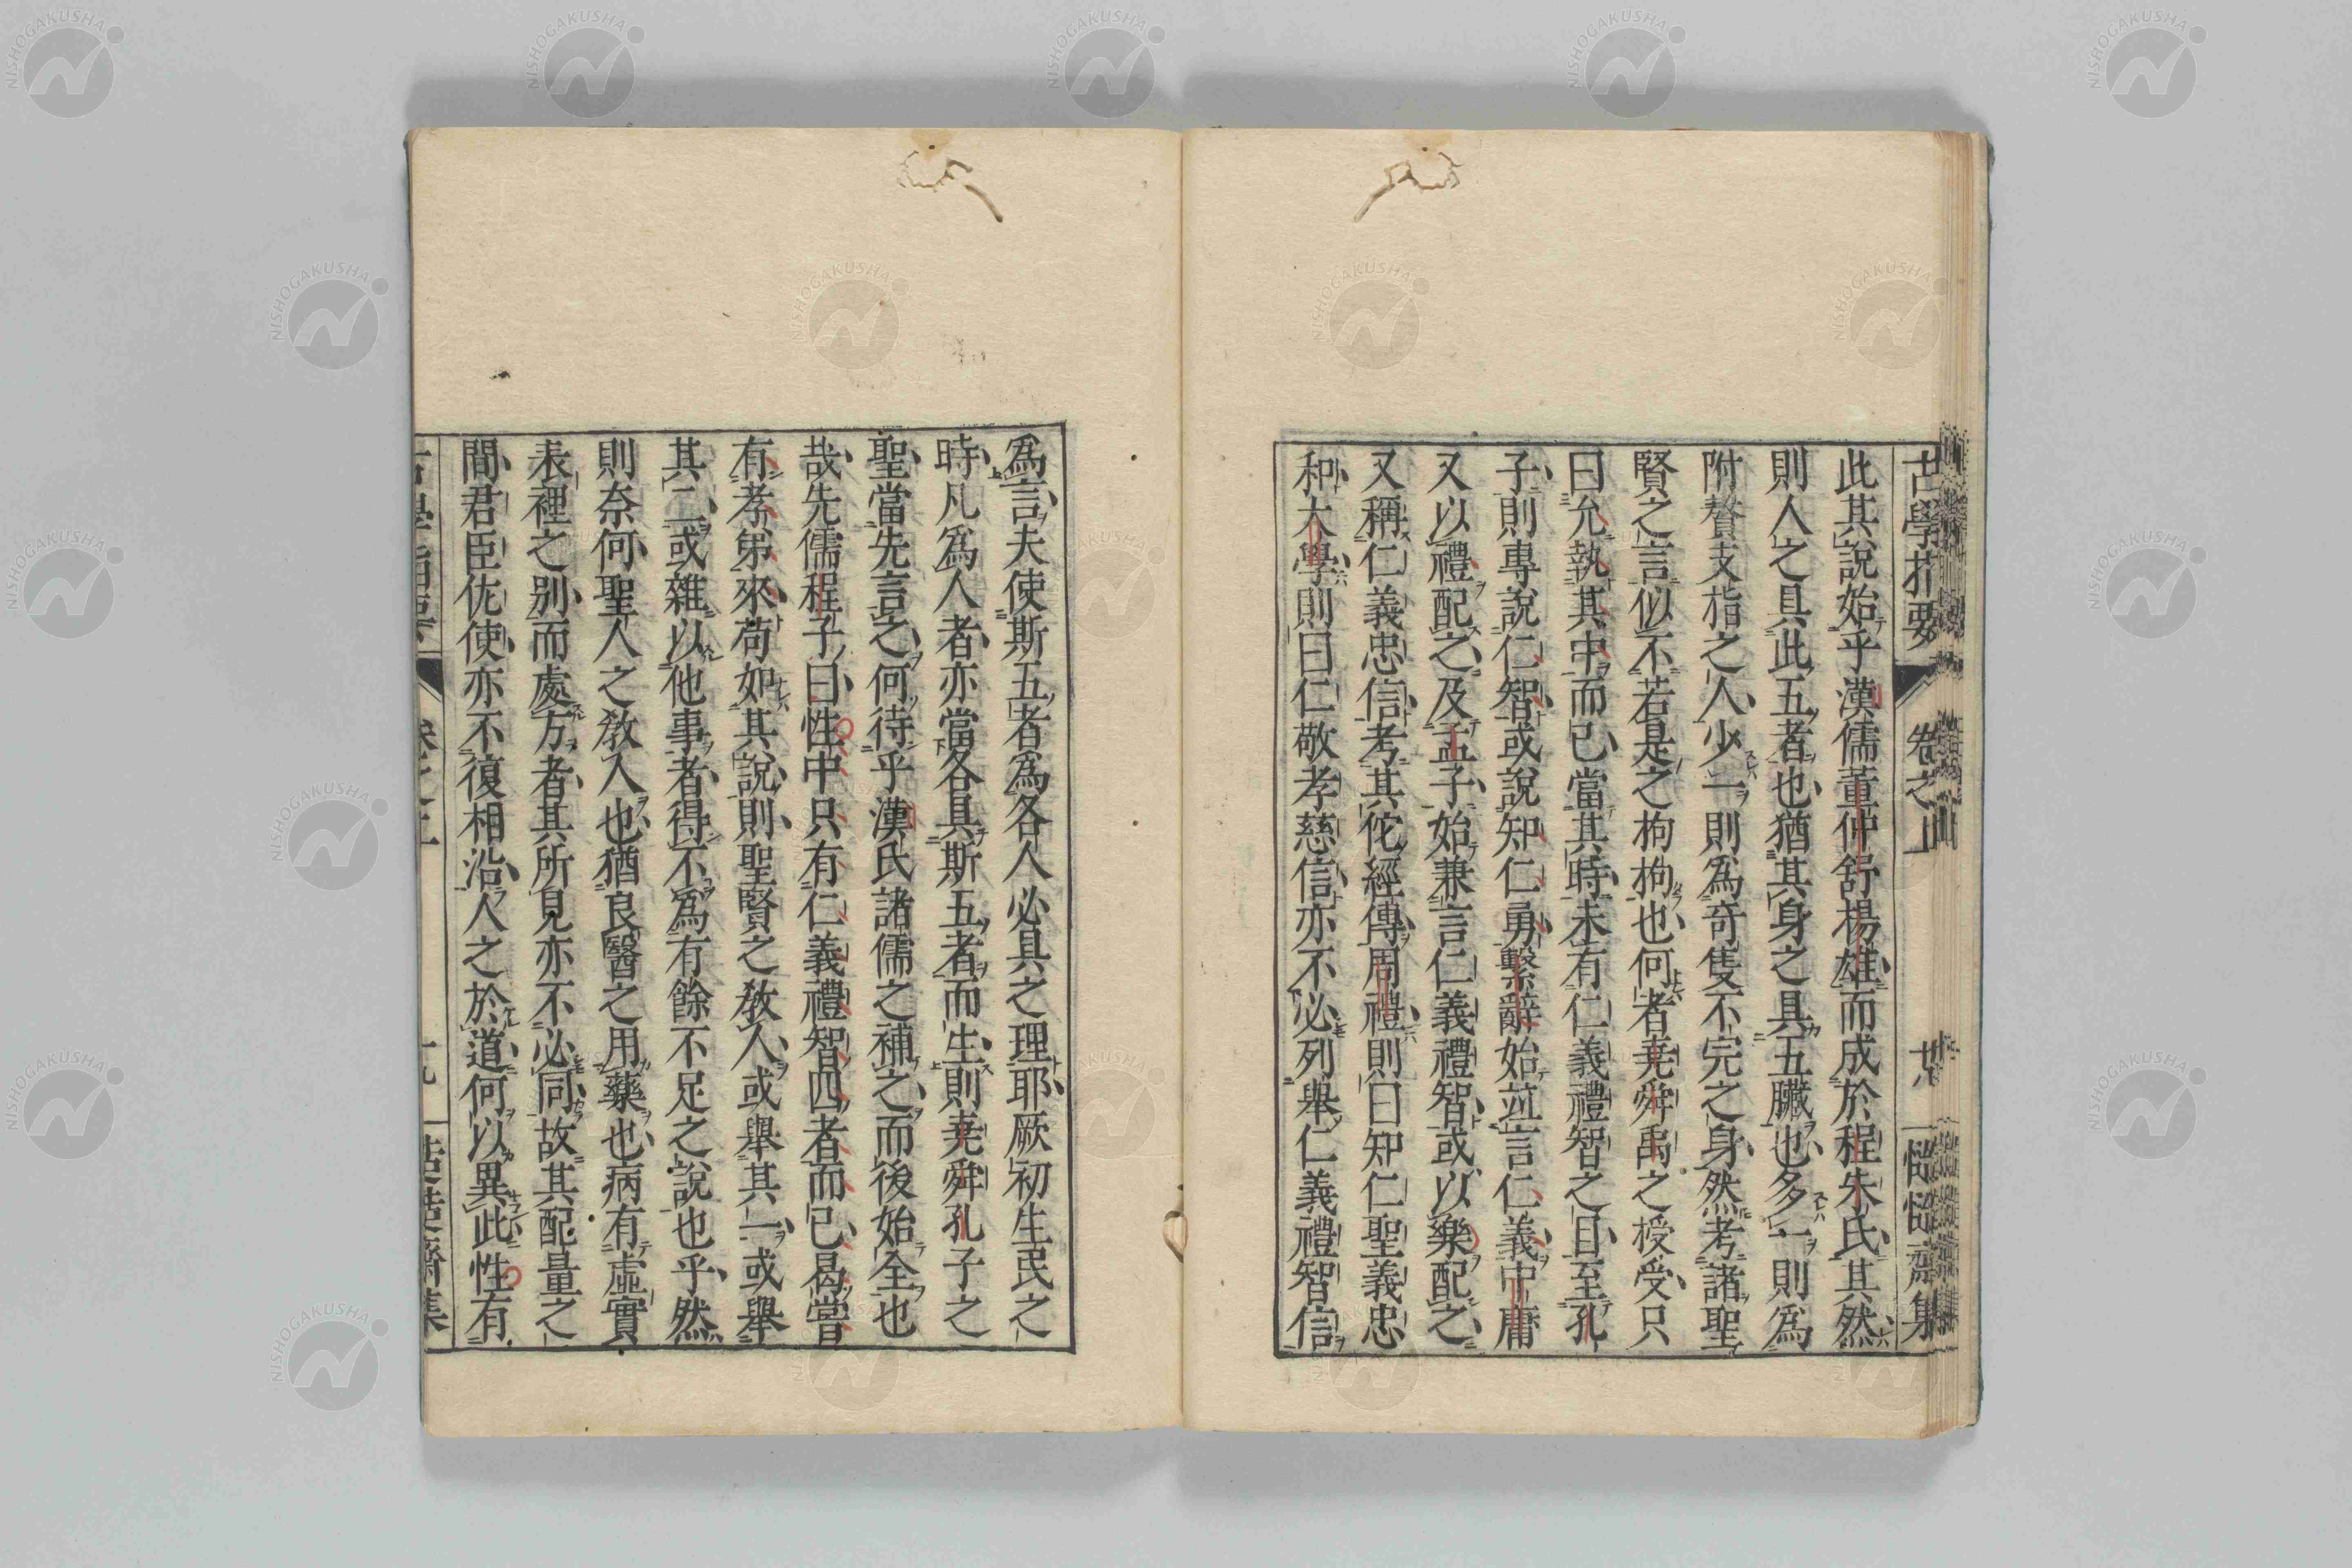 古學指要
卷之上
此其說始乎漢儒董仲舒楊雄而成於程朱氏其然
則人之具此五者也猶其身之具五臟也多一則為
附贅支指之人少一則為奇隻不完之身然考諸聖
賢之言似不若是之拘拘也何者堯舜禹之授受只
曰允執其中而已當其時未有仁義禮智之目至孔
子則專說仁智或說知仁勇繫辭始竝言仁義中庸
又以禮配之及孟子始兼言仁義禮智或以樂配之
又稱仁義忠信考其佗經傳周禮則曰知仁聖義忠
和大學則曰仁敬孝慈信亦不必列舉仁義禮智信
為言夫使斯五者為各人必具之理耶厥初生民之
時凡為人者亦當各具斯五者而生則堯舜孔子之
聖當先言之何待乎漢氏諸儒之補之而後始全也
哉先儒程子曰性中只有仁義禮智四者而已曷嘗
有孝弟來苟如其說則聖賢之敎人或舉其一或舉
其二或雜以他事者得不為有餘不足之說也乎然
則奈何聖人之敎人也猶良醫之用藥也病有虛實
表裡之別而處方者其所見亦不必同故其配量之
間君臣佐使亦不復相沿人之於道何以異此性有
NISHOGAKUSHA